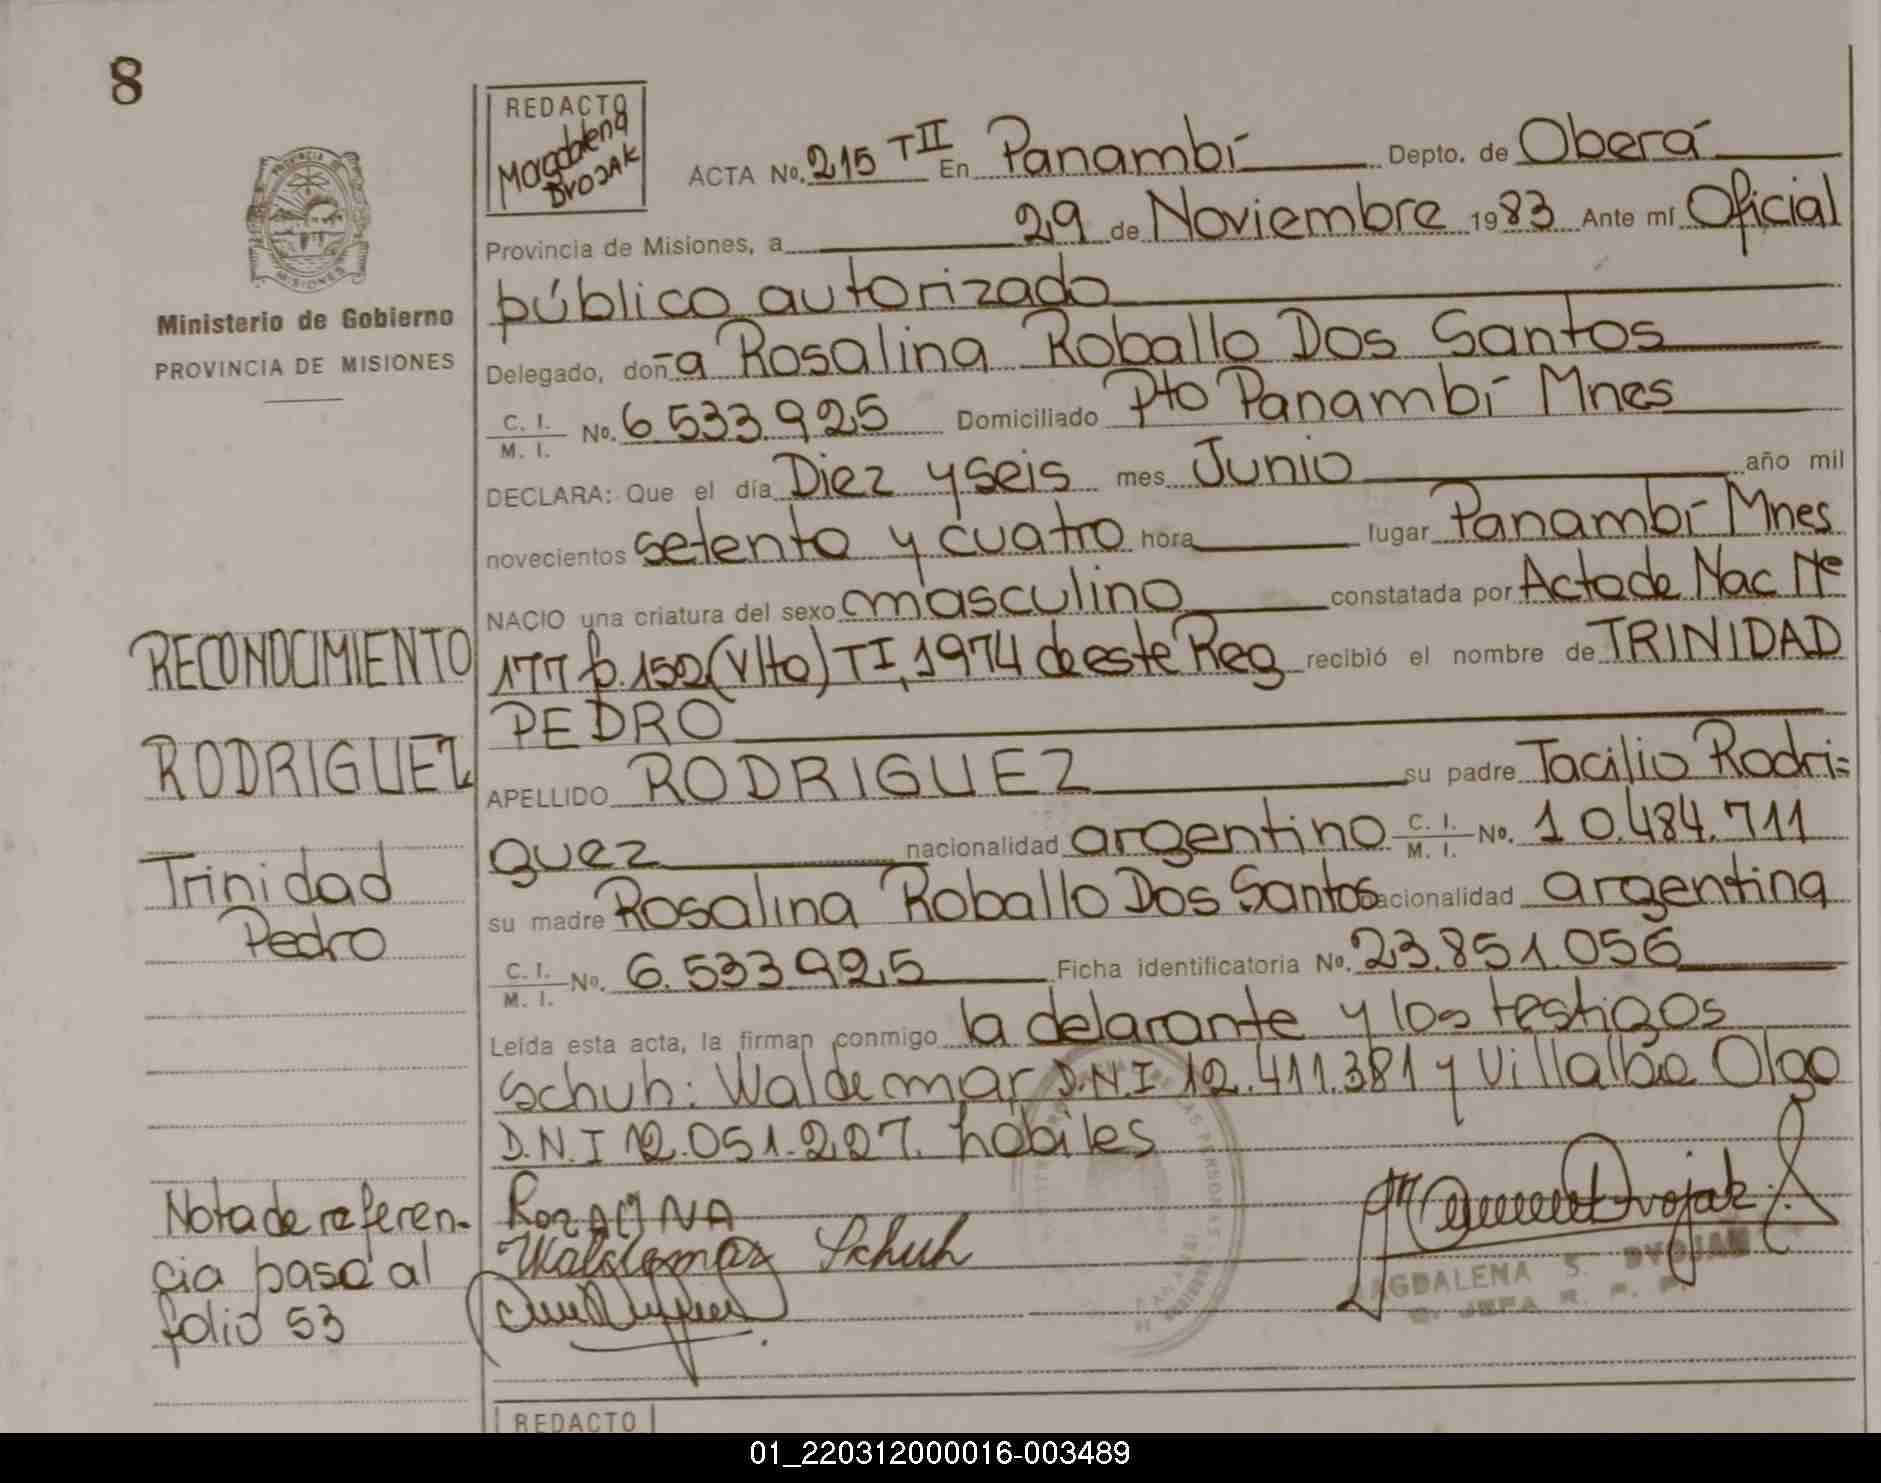 8
REDACTO
Magdalena
DVOJAK
PROVINCIA DE
MISIONES
Ministerio de Gobierno
PROVINCIA DE MISIONES
ACTA No. 215 TII En Panambí Depto. de Oberá
Provincia de Misiones, a 29 de Noviembre 1983 Ante mí Oficial
público autorizado
Delegado, doña Rosalina Roballo Dos Santos
C. I. / M. I. No. 6.533.925 Domiciliado Pto Panambí Mnes
DECLARA: Que el día Diez y seis mes Junio año mil
novecientos setenta y cuatro hora lugar Panambí Mnes
NACIO una criatura del sexo masculino constatada por Acta de Nac Nº
177 f. 152 (Vlto) TI, 1974 de este Reg recibió el nombre de TRINIDAD
PEDRO
APELLIDO RODRIGUEZ su padre Tacilio Rodri=
guez nacionalidad argentino C. I. / M. I. No. 10.484.711
su madre Rosalina Roballo Dos Santos acionalidad argentina
C. I. / M. I. No. 6.533.925 Ficha identificatoria No. 23.851.056
Leída esta acta, la firman conmigo la delarante y los testigos
Schuh: Waldemar D.N.I 12.411.381 y Villalba Olga
D.N.I 12.051.227. habiles
RECONOCIMIENTO
RODRIGUEZ
Trinidad
Pedro
Nota de referen-
cia pasa al
folio 53
Waldemar Schuh
Dvojak
MAGDALENA S. DVOJAK
REDACTO
01_220312000016-003489